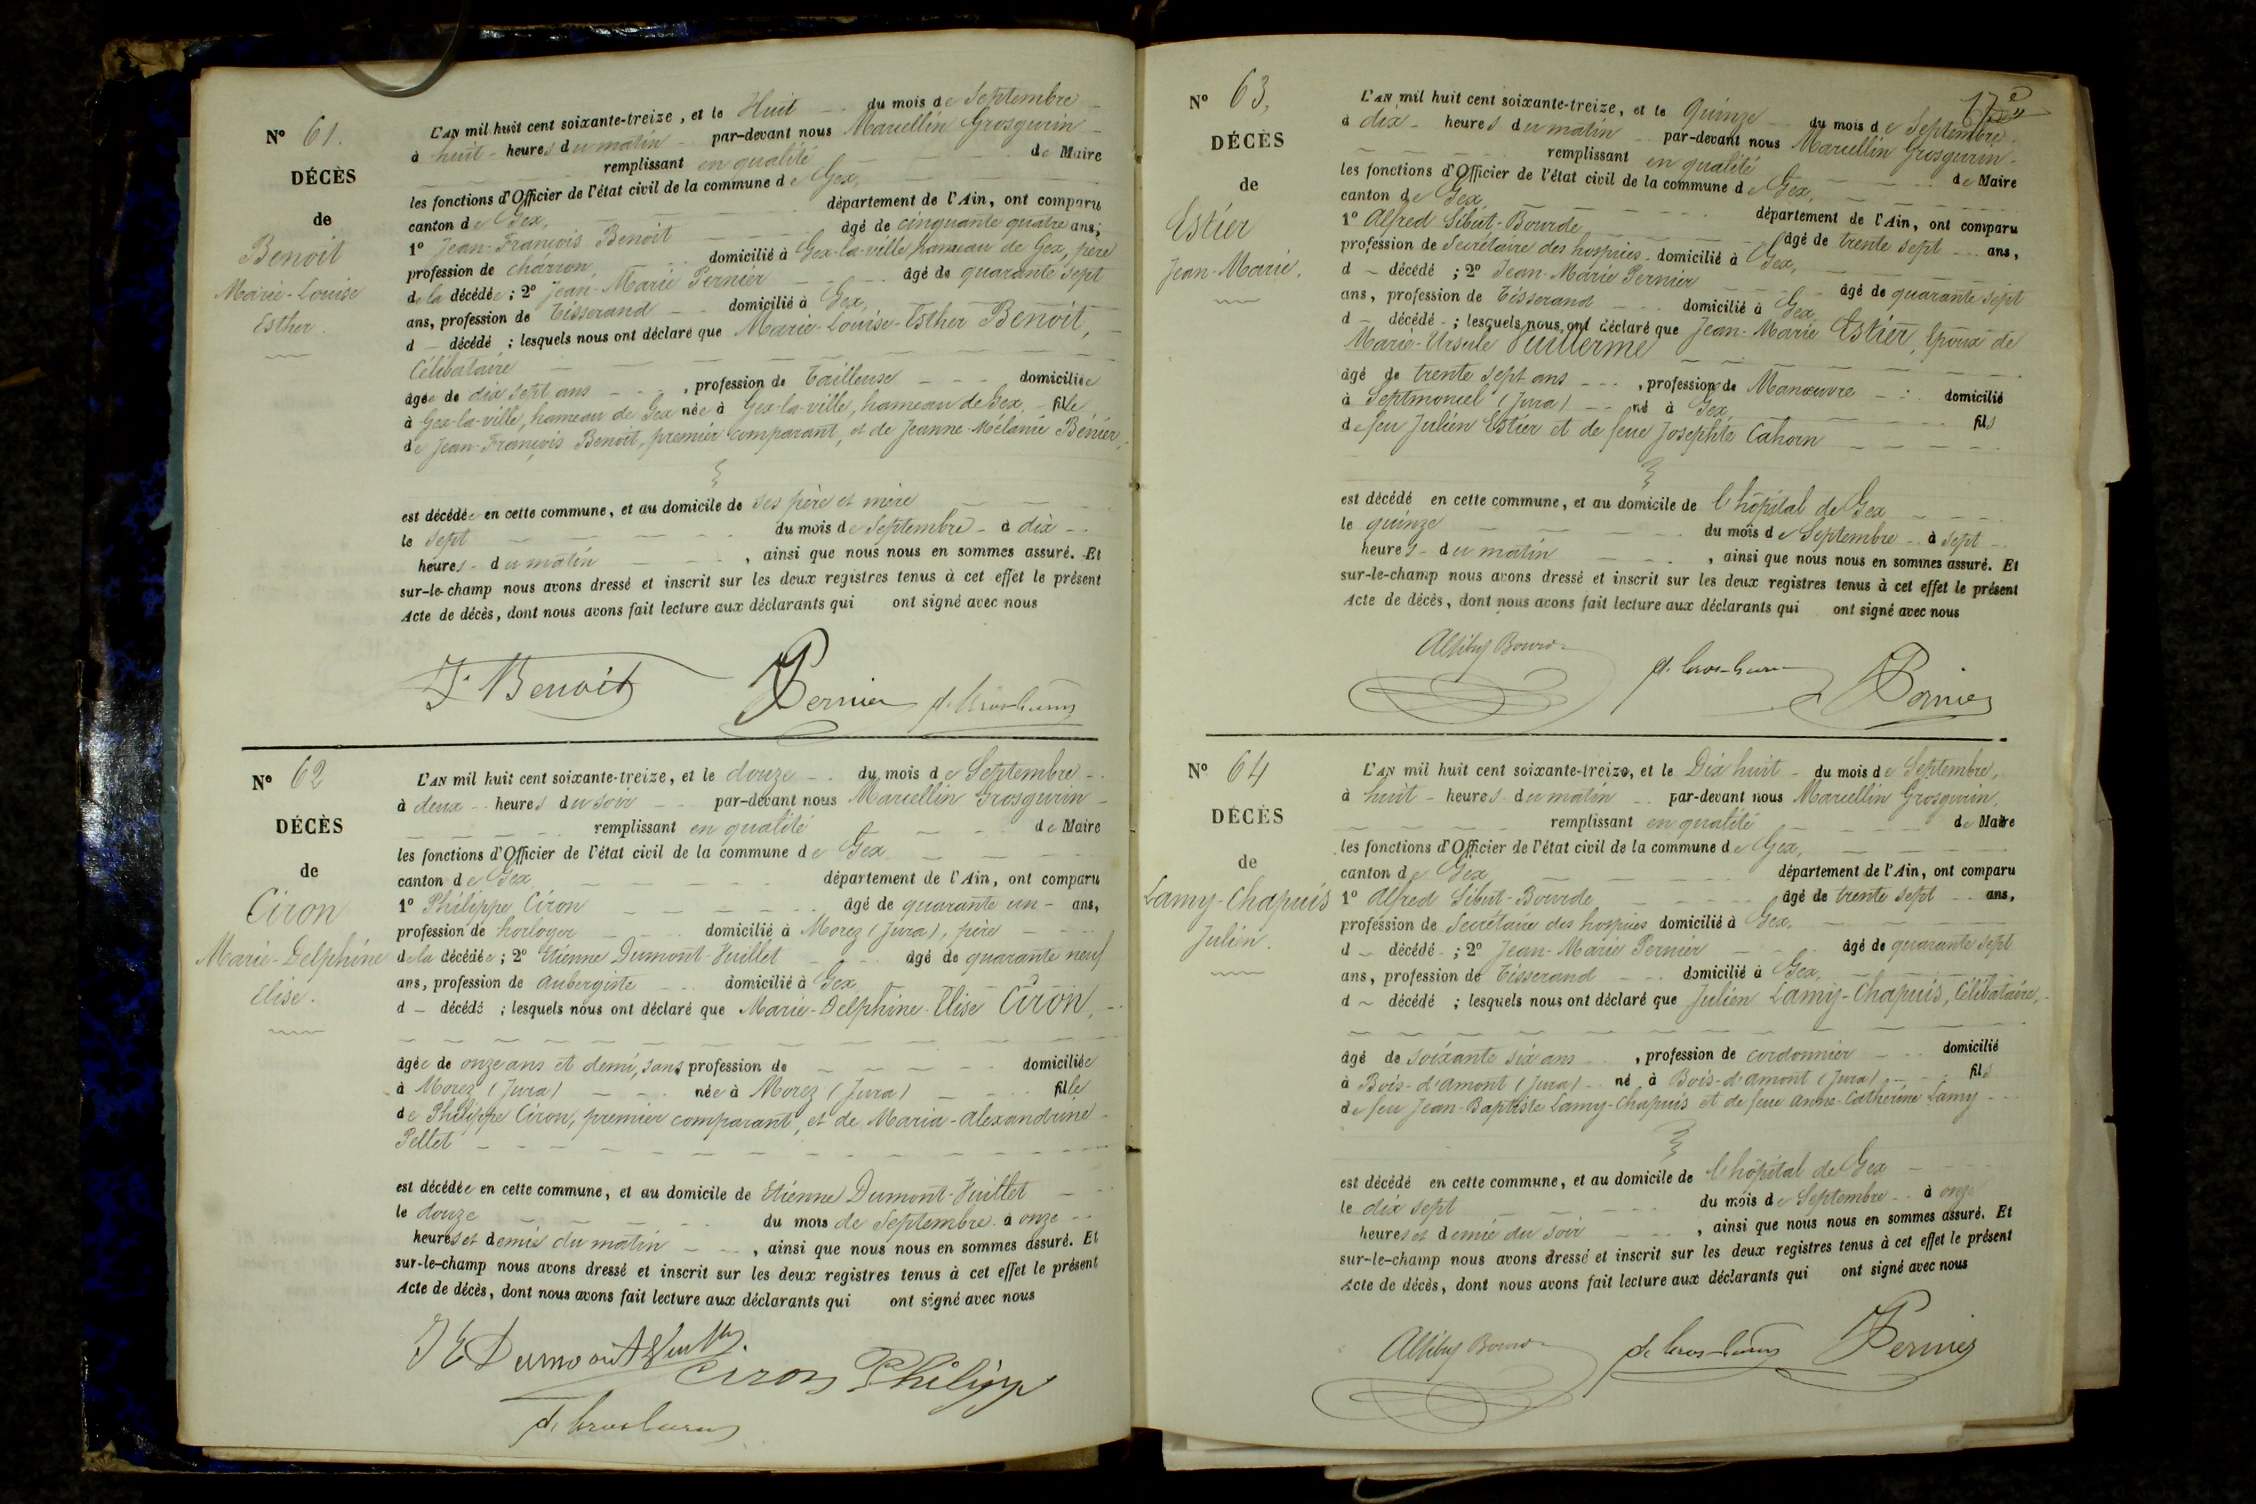 N° 61.
DÉCÈS
de
Benoit
Marie-Louise
Esther.
L'AN mil huit cent soixante-treize, et le Huit du mois de Septembre
à huit heures du matin par-devant nous Marcellin Grosgurin
remplissant en qualité de Maire
les fonctions d'Officier de l'état civil de la commune de Gex,
canton de Gex, département de l'Ain, ont comparu
1° Jean-François Benoit âgé de cinquante quatre ans;
profession de charron, domicilié à Gex-la-ville, hameau de Gex, père
de la décédée; 2° Jean-Marie Pernier âgé de quarante sept
ans, profession de Tisserand domicilié à Gex,
d décédé ; lesquels nous ont déclaré que Marie-Louise-Esther Benoit,
Célibataire
âgée de dix sept ans, profession de Tailleuse domiciliée
à Gex-la-ville, hameau de Gex née à Gex-la-ville, hameau de Gex, fille
de Jean-François Benoit, premier comparant, et de Jeanne-Mélanie Bénier,
est décédée en cette commune, et au domicile de ses père et mère
le sept du mois de Septembre à dix
heures du matin, ainsi que nous nous en sommes assuré. Et
sur-le-champ nous avons dressé et inscrit sur les deux registres tenus à cet effet le présent
Acte de décès, dont nous avons fait lecture aux déclarants qui ont signé avec nous
F. Benoit Pernier
N° 62
DÉCÈS
de
Ciron
Marie-Delphine
Elise.
L'AN mil huit cent soixante-treize, et le douze du mois de Septembre
à deux heures du soir par-devant nous Marcellin Grosgurin
remplissant en qualité de Maire
les fonctions d'Officier de l'état civil de la commune de Gex
canton de Gex, département de l'Ain, ont comparu
1° Philippe Ciron âgé de quarante un ans,
profession de horloger domicilié à Morez (Jura), père
de la décédée; 2° Etienne Dumont-Huillet âgé de quarante neuf
ans, profession de Aubergiste domicilié à Gex
d décédé ; lesquels nous ont déclaré que Marie-Delphine-Elise Ciron,
âgée de onze ans et demi, sans profession de domiciliée
à Morez (Jura) née à Morez (Jura) fille
de Philippe Ciron, premier comparant, et de Maria-Alexandrine
Pellet
est décédée en cette commune, et au domicile de Etienne Dumont-Huillet
le douze du mois de Septembre à onze
heures et demie du matin, ainsi que nous nous en sommes assuré. Et
sur-le-champ nous avons dressé et inscrit sur les deux registres tenus à cet effet le présent
Acte de décès, dont nous avons fait lecture aux déclarants qui ont signé avec nous
Ciron Philippe
17e
N° 63,
DÉCÈS
de
Estier
Jean-Marie.
L'AN mil huit cent soixante-treize, et le Quinze du mois de Septembre
à dix heures du matin par-devant nous Marcellin Grosgurin
remplissant en qualité de Maire
les fonctions d'Officier de l'état civil de la commune de Gex,
canton de Gex, département de l'Ain, ont comparu
1° Alfred Sibut-Bourde âgé de trente sept ans,
profession de Secrétaire des hospices domicilié à Gex,
d décédé ; 2° Jean-Marie Pernier âgé de quarante sept
ans, profession de Tisserand domicilié à Gex,
d décédé ; lesquels nous ont déclaré que Jean-Marie Estier, époux de
Marie-Ursule Vuillerme
âgé de trente sept ans, profession de Manœuvre domicilié
à Septmoncel (Jura) né à Gex, fils
de feu Julien Estier et de feue Josephte Cahorn
est décédé en cette commune, et au domicile de l'hôpital de Gex
le quinze du mois de Septembre à sept
heures du matin, ainsi que nous nous en sommes assuré. Et
sur-le-champ nous avons dressé et inscrit sur les deux registres tenus à cet effet le présent
Acte de décès, dont nous avons fait lecture aux déclarants qui ont signé avec nous
Pernier
N° 64
DÉCÈS
de
Lamy-Chapuis
Julien.
L'AN mil huit cent soixante-treize, et le Dix huit du mois de Septembre,
à huit heures du matin par-devant nous Marcellin Grosgurin,
remplissant en qualité de Maire
les fonctions d'Officier de l'état civil de la commune de Gex,
canton de Gex, département de l'Ain, ont comparu
1° Alfred Sibut-Bourde âgé de trente sept ans,
profession de Secrétaire des hospices domicilié à Gex,
d décédé ; 2° Jean-Marie Pernier âgé de quarante sept
ans, profession de Tisserand domicilié à Gex,
d décédé ; lesquels nous ont déclaré que Julien Lamy-Chapuis, Célibataire,
âgé de soixante six ans, profession de cordonnier domicilié
à Bois-d'amont (Jura) né à Bois-d'amont (Jura) fils
de feu Jean-Baptiste Lamy-Chapuis et de feue Anne-Catherine Lamy
est décédé en cette commune, et au domicile de l'hôpital de Gex
le dix sept du mois de Septembre à onze
heures et demie du soir, ainsi que nous nous en sommes assuré. Et
sur-le-champ nous avons dressé et inscrit sur les deux registres tenus à cet effet le présent
Acte de décès, dont nous avons fait lecture aux déclarants qui ont signé avec nous
Pernier